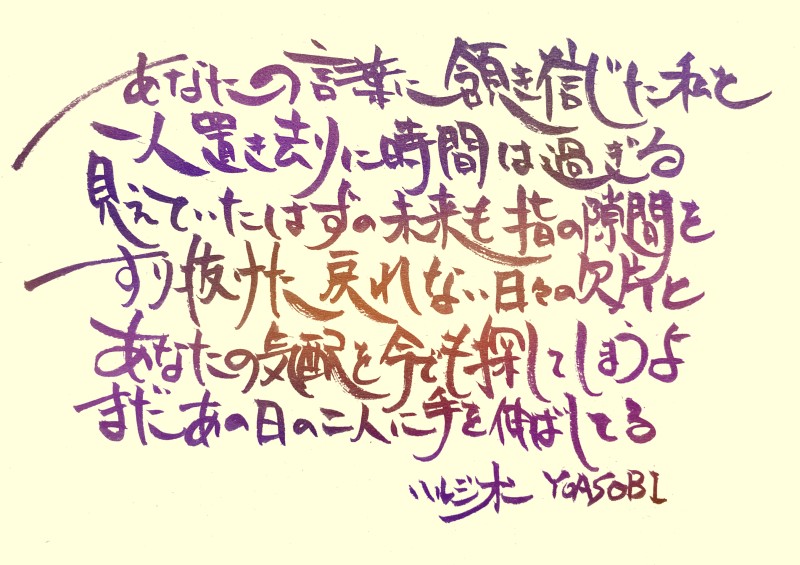 あなたの言葉に頷き信じた私を
一人置き去りに時間は過ぎる
見えていたはずの未来も指の隙間を
すり抜けた戻れない日々の欠片と
あなたの気配を今でも探してしまうよ
まだあの日の二人に手を伸ばしてる
ハルジオン YOASOBI